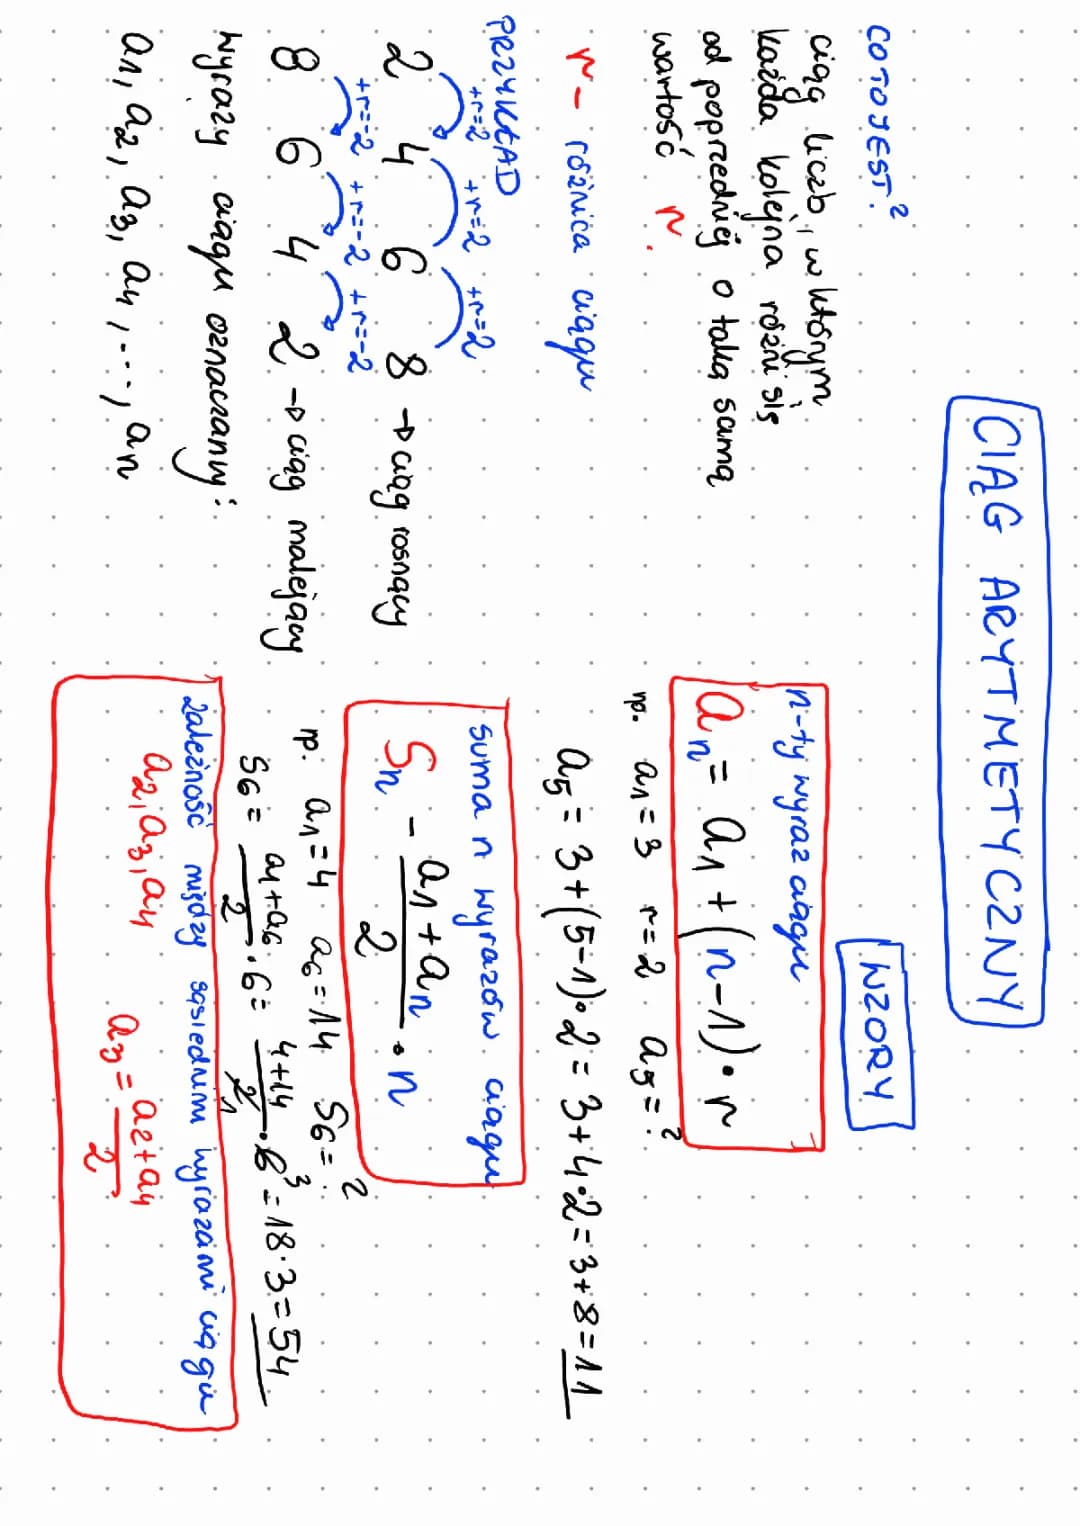 CIĄG ARYTMETYCZNY
CO TO JEST?
ciąg liczb, w którym
każda kolejna różni się
od poprzedniej o taką samą
wartość r.
r - różnica ciągu
PRZYKŁAD
+r=2 +r=2 +r=2
2 4 6 8 → ciąg rosnący
+r=-2 +r=-2 +r=-2
8 6 4 2 → ciąg malejący
Wyrazy ciągu oznaczamy:
a1, a2, a3, a4, ..., an
WZORY
n-ty wyraz ciągu
an = a1 + (n-1)·r
np. a1=3 r=2 a5=?
a5 = 3+(5-1)·2 = 3+4·2 = 3+8 = 11
suma n wyrazów ciągu
Sn - a1+an/2 · n
np. a1=4 a6=14 S6=?
S6 = a1+a6/2 · 6 = 4+14/2 1 · 6 3 = 18·3 = 54
zależność między sąsiednim wyrazami ciągu
a2, a3, a4
a3 = a2+a4/2